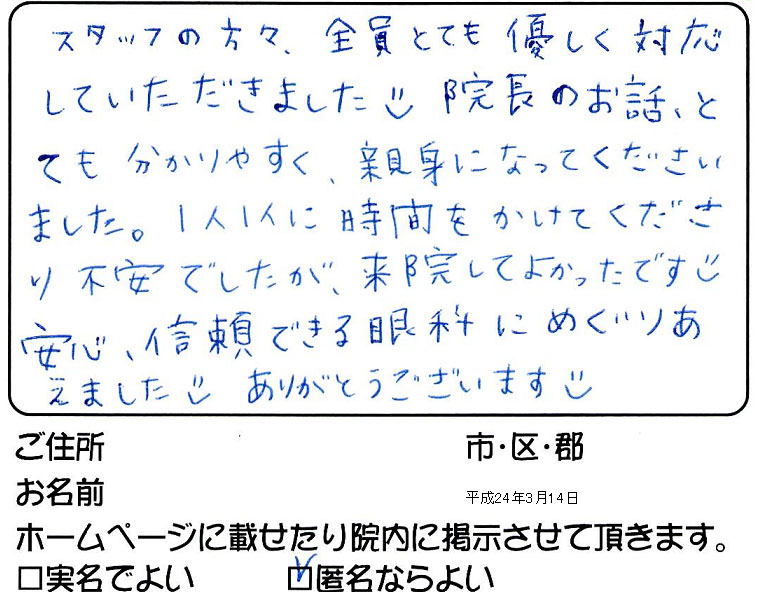 スタッフの方々、全員とても優しく対応
していただきました 院長のお話、と
ても分かりやすく、親身になってください
ました。1人1人に時間をかけてくださ
り不安でしたが、来院してよかったです
安心、信頼できる眼科にめぐりあ
えました ありがとうございます
ご住所 市・区・郡
お名前 平成24年3月14日
ホームページに載せたり院内に掲示させて頂きます。
□実名でよい ☑匿名ならよい